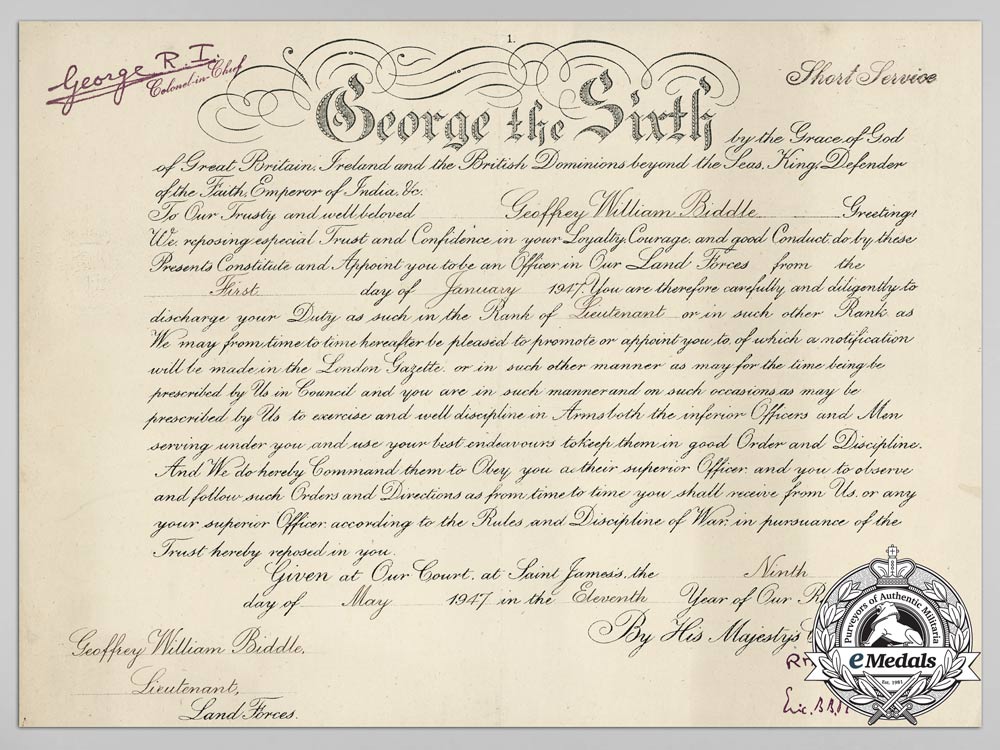 1.
George R.I.
Colonel-in-Chief
Short Service
George the Sixth by the Grace of God
of Great Britain, Ireland and the British Dominions beyond the Seas, King, Defender
of the Faith, Emperor of India, &c.
To Our Trusty and well beloved Geoffrey William Biddle Greeting!
We, reposing especial Trust and Confidence in your Loyalty, Courage, and good Conduct, do by these
Presents Constitute and Appoint you to be an Officer in Our Land Forces from the
First day of January 1947. You are therefore carefully and diligently to
discharge your Duty as such in the Rank of Lieutenant or in such other Rank as
We may from time to time hereafter be pleased to promote or appoint you to, of which a notification
will be made in the London Gazette, or in such other manner as may for the time being be
prescribed by Us in Council and you are in such manner and on such occasions as may be
prescribed by Us to exercise and well discipline in Arms both the inferior Officers and Men
serving under you and use your best endeavours to keep them in good Order and Discipline.
And We do hereby Command them to Obey you as their superior Officer, and you to observe
and follow such Orders and Directions as from time to time you shall receive from Us, or any
your superior Officer, according to the Rules and Discipline of War, in pursuance of the
Trust hereby reposed in you.
Given at Our Court, at Saint James's, the Ninth
day of May 1947 in the Eleventh Year of Our
By His Majesty's
Geoffrey William Biddle,
Lieutenant,
Land Forces.
Purveyors of Authentic Militaria
eMedals
Est. 1981